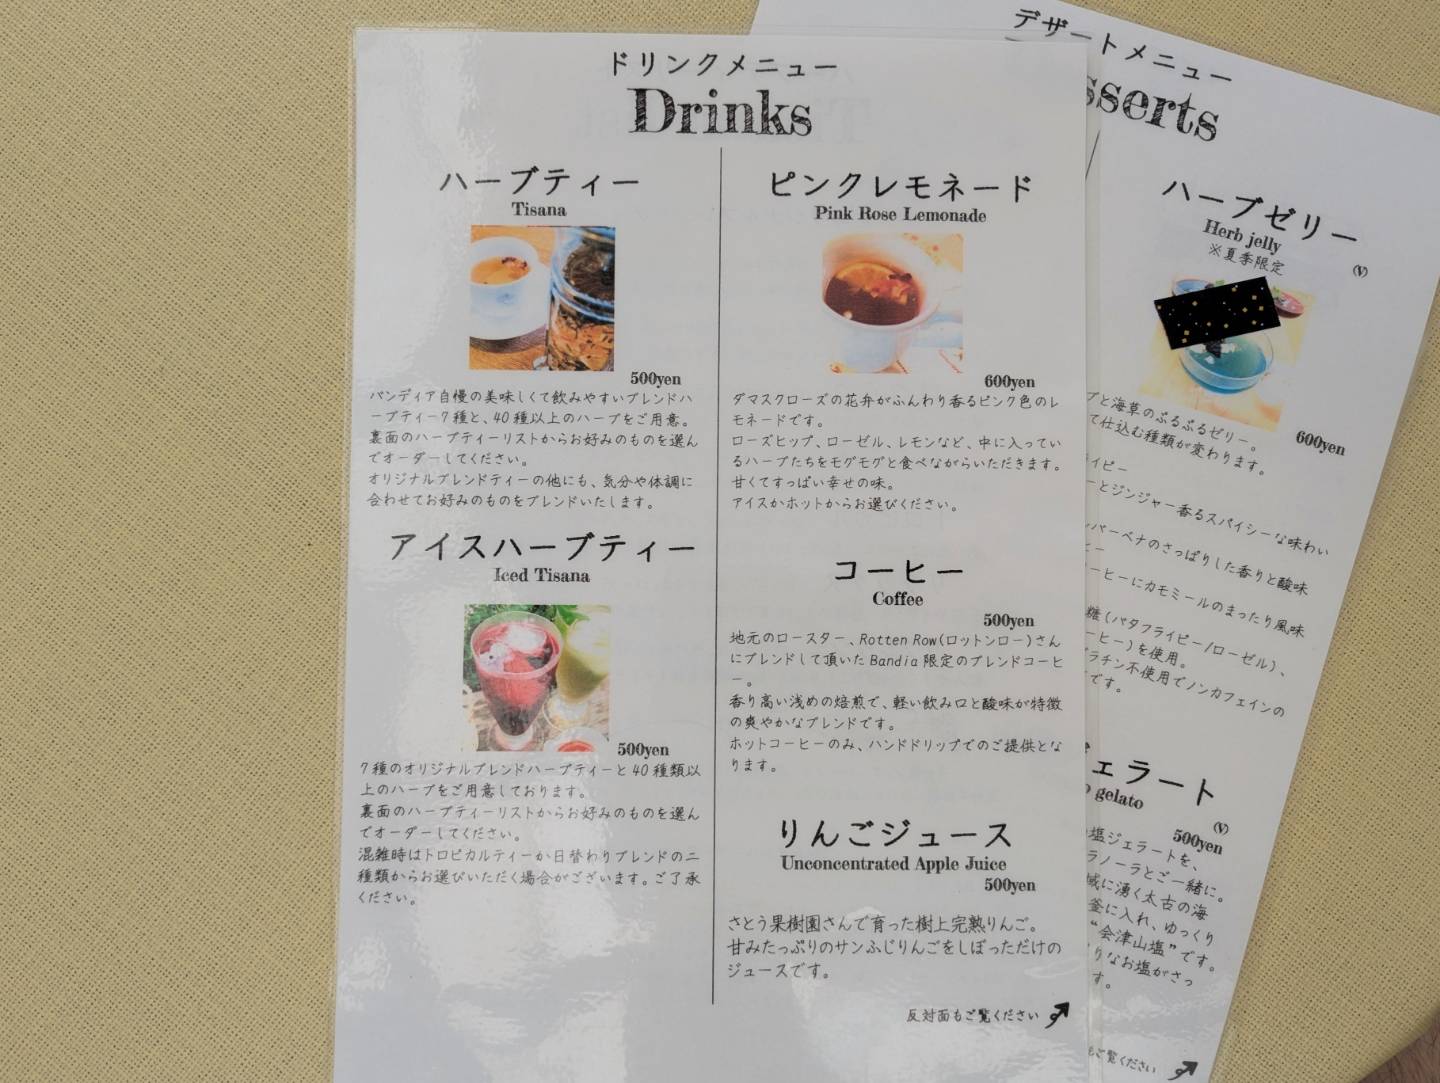 ドリンクメニュー
Drinks
ハーブティー
Tisana
500yen
バンディア自慢の美味しくて飲みやすいブレンドハ
ーブティー7種と、40種以上のハーブをご用意。
裏面のハーブティーリストからお好みのものを選ん
でオーダーしてください。
オリジナルブレンドティーの他にも、気分や体調に
合わせてお好みのものをブレンドいたします。
アイスハーブティー
Iced Tisana
500yen
7種のオリジナルブレンドハーブティーと40種類以
上のハーブをご用意しております。
裏面のハーブティーリストからお好みのものを選ん
でオーダーしてください。
混雑時はトロピカルティーか日替わりブレンドの二
種類からお選びいただく場合がございます。ご了承
ください。
ピンクレモネード
Pink Rose Lemonade
600yen
ダマスクローズの花弁がふんわり香るピンク色のレ
モネードです。
ローズヒップ、ローゼル、レモンなど、中に入ってい
るハーブたちをモグモグと食べながらいただきます。
甘くてすっぱい幸せの味。
アイスかホットからお選びください。
コーヒー
Coffee
500yen
地元のロースター、Rotten Row(ロットンロー)さん
にブレンドして頂いたBandia限定のブレンドコーヒ
ー。
香り高い浅めの焙煎で、軽い飲み口と酸味が特徴
の爽やかなブレンドです。
ホットコーヒーのみ、ハンドドリップでのご提供とな
ります。
りんごジュース
Unconcentrated Apple Juice
500yen
さとう果樹園さんで育った樹上完熟りんご。
甘みたっぷりのサンふじりんごをしぼっただけの
ジュースです。
反対面もご覧ください
デザートメニュー
sserts
ハーブゼリー
Herb jelly
※夏季限定
(V)
600yen
ブと海草のぷるぷるゼリー。
て仕込む種類が変わります。
イピー
ーとジンジャー香るスパイシーな味わい
バーベナのさっぱりした香りと酸味
ヒー
ーヒーにカモミールのまったり風味
糖(バタフライピー/ローゼル)、
ーヒー)を使用。
ラチン不使用でノンカフェインの
です。
ェラート
gelato
(V)
500yen
塩ジェラートを、
ラノーラとご一緒に。
域に湧く太古の海
釜に入れ、ゆっくり
“会津山塩”です。
りなお塩がさっ
す。
もご覧ください